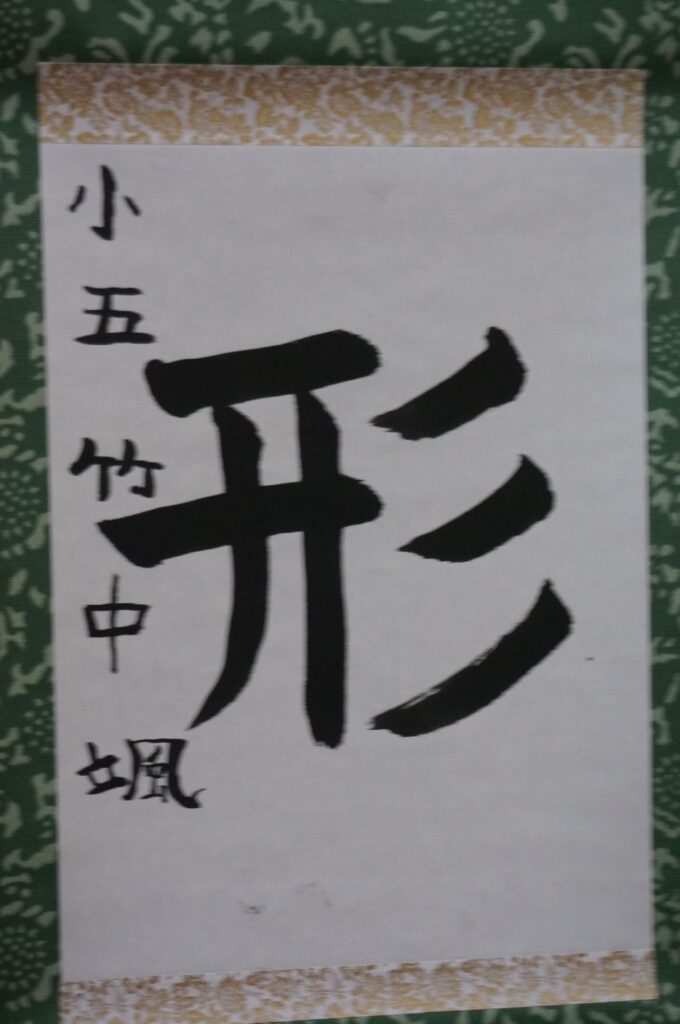 形
小五 竹中颯